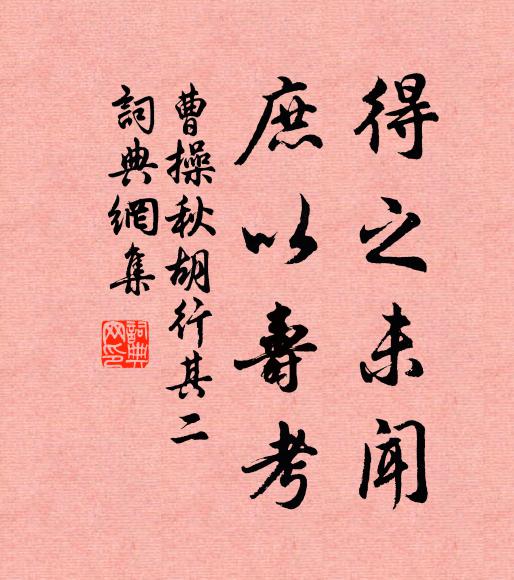 得之未聞
庶以壽考
曹操秋胡行其二
詞典網集
詞典網印